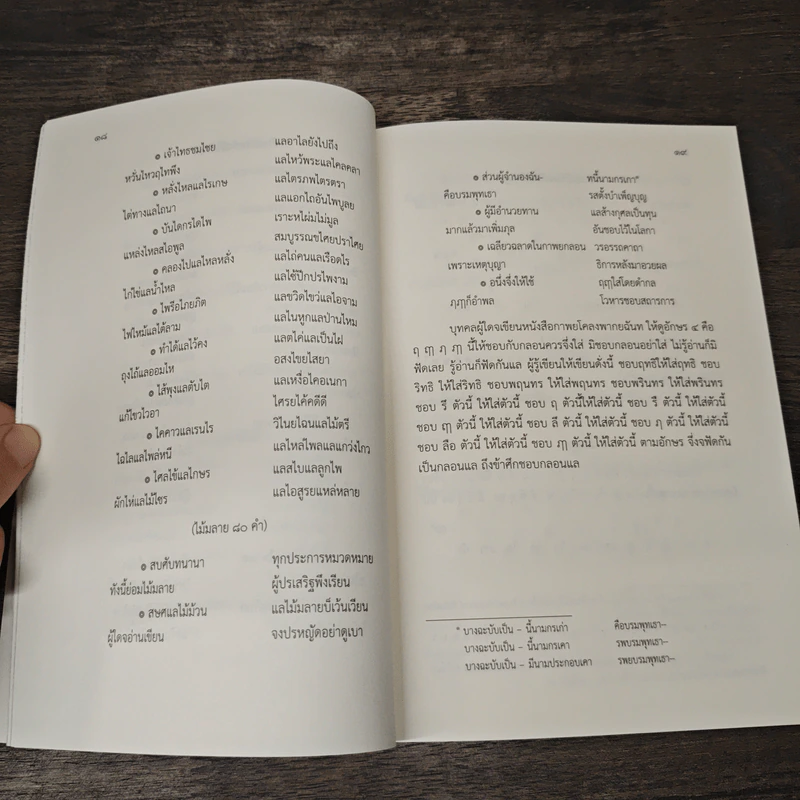 ๑๘
๏ เจ้าไทธชมไชย แลอาไลยังไปถึง
หรั่นไหวฤไทพึง แลไหว้พระแลไคลคลา
๏ หลั่งไหลแลไรเกษ แลไตรภพไตรตรา
ไต่ทางแลไถนา แลแอกไถอันไพบูลย
๏ บันไดกรไดไพ เราะหไผ่มไม่มูล
แหล่งไหลสไอพูล สมบูรรณขไศยปราไศย
๏ คลองไปแลไหลหลั่ง แลไถ่คนแลเรือดไร
ไกไข่แลน้ำไหล แลไช้ปีกปรไพงาม
๏ ไพรีอไภยภิต แลขวิดไขว่แลไอจาม
ไฟไหม้แลไต้ลาม แลไนหูกแลป่านไหม
๏ ทำไต้แลไว้คง แลตไค่แลเป็นไฝ
ถุงไถ้แลออมไห อสงไขยไสยา
๏ ไส้พุงแลตับไต แลเหงื่อไคอเนกา
แก้ไขวไวอา ไศรยไค้คดีดี
๏ ไคคาวแลเรนไร วิไนยไฉนแลไม้ตรี
ไฉไลแลไพล่หนี แลไหลไพลแลแกว่งไกว
๏ ไศลไข้แลไกษร แลสไบแลลูกไพ
ผักไห่แลไม้ไซร แลไอสูรยแหล่หลาย
(ไม้มลาย ๘๐ คำ)
๏ สบศับทนานา ทุกประการหมวดหมาย
ทังนี้ย่อมไม้มลาย ผู้ปรเสริฐพึงเรียน
๏ สษศแลไม้ม้วน แลไม้มลายบ็เว้นเวียน
ผู้ใดจอ่านเขียน จงปรหญัดอย่าดูเบา
๑๙
๏ ส่วนผู้จำนองฉัน- ทนี้นามกรเกา*
คือบรมพุทเธา รสตั้งบำเพ็ญบุญ
๏ ผู้มีอำนวยทาน แลส้างกุศลเป็นทุน
มากแล้วมาเพิ่มภุล อันชอบไว้ในโลกา
๏ เฉลียวฉลาดในกาพยกลอน วรอรรถคาถา
เพราะเหตุบุญา ธิการหลังมาอวยผล
๏ อนึ่งจึ่งให้ใช้ ฤๅใส่โดยตำกล
ฦๅก็อำพล โวหารชอบสถารการ
บุทคลผู้ใดจเขียนหนังสือกาพยโคลงพากยฉันท ให้ดูอักษร ๔ คือ
ฤ ฤๅ ฦ ฦๅ นี้ให้ชอบกับกลอนควรจึ่งใส่ มิชอบกลอนอย่าใส่ ไม่รู้อ่านก็มิ
ฟัดเลย รู้อ่านก็ฟัดกันแล ผู้รู้เขียนให้เขียนดั่งนี้ ชอบฤทธิให้ใส่ฤทธิ ชอบ
ริทธิ ให้ใส่ริทธิ ชอบพฤนทร ให้ใส่พฤนทร ชอบพรินทร ให้ใส่พรินทร
ชอบ รึ ตัวนี้ ให้ใส่ตัวนี้ ชอบ ฤ ตัวนี้ให้ใส่ตัวนี้ ชอบ รื ตัวนี้ ให้ใส่ตัวนี้
ชอบ ฤๅ ตัวนี้ ให้ใส่ตัวนี้ ชอบ ลึ ตัวนี้ ให้ใส่ตัวนี้ ชอบ ฦ ตัวนี้ ให้ใส่ตัวนี้
ชอบ ลือ ตัวนี้ ให้ใส่ตัวนี้ ชอบ ฦๅ ตัวนี้ ให้ใส่ตัวนี้ ตามอักษร จึ่งจฟัดกัน
เป็นกลอนแล ถึงข้าศึกชอบกลอนแล
* บางฉะบับเป็น – นี้นามกรเก่า คือบรมพุทเธา–
บางฉะบับเป็น – นี้นามกรเคา รพบรมพุทเธา–
บางฉะบับเป็น – มีนามประกอบเคา รพยบรมพุทเธา–